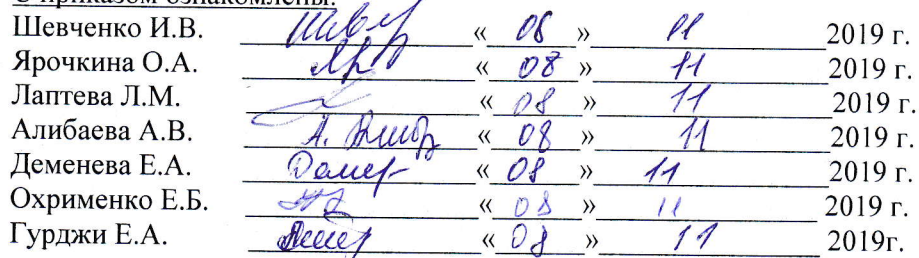 С приказом ознакомлены:
Шевченко И.В. «08» 11 2019 г.
Ярочкина О.А. «08» 11 2019 г.
Лаптева Л.М. «08» 11 2019 г.
Алибаева А.В. «08» 11 2019 г.
Деменева Е.А. «08» 11 2019 г.
Охрименко Е.Б. «08» 11 2019 г.
Гурджи Е.А. «08» 11 2019г.